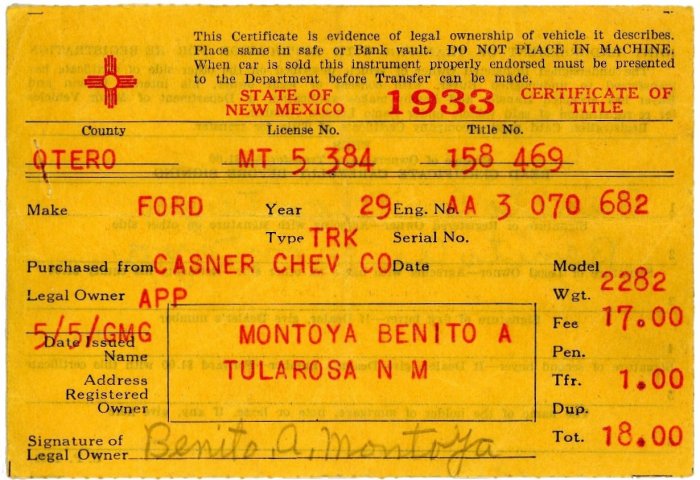 This Certificate is evidence of legal ownership of vehicle it describes.
Place same in safe or Bank vault. DO NOT PLACE IN MACHINE.
When car is sold this instrument properly endorsed must be presented
to the Department before Transfer can be made.
STATE OF NEW MEXICO 1933 CERTIFICATE OF TITLE
County License No. Title No.
OTERO MT 5 384 158 469
Make FORD Year 29 Eng. No. AA 3 070 682
Type TRK Serial No.
Purchased from CASNER CHEV CO Date Model
Legal Owner APP Wgt. 2282
5/5/GMG Fee 17.00
Date Issued
Name MONTOYA BENITO A Pen.
Address TULAROSA N M Tfr. 1.00
Registered Owner Dup.
Signature of Legal Owner Benito. A. Montoya Tot. 18.00